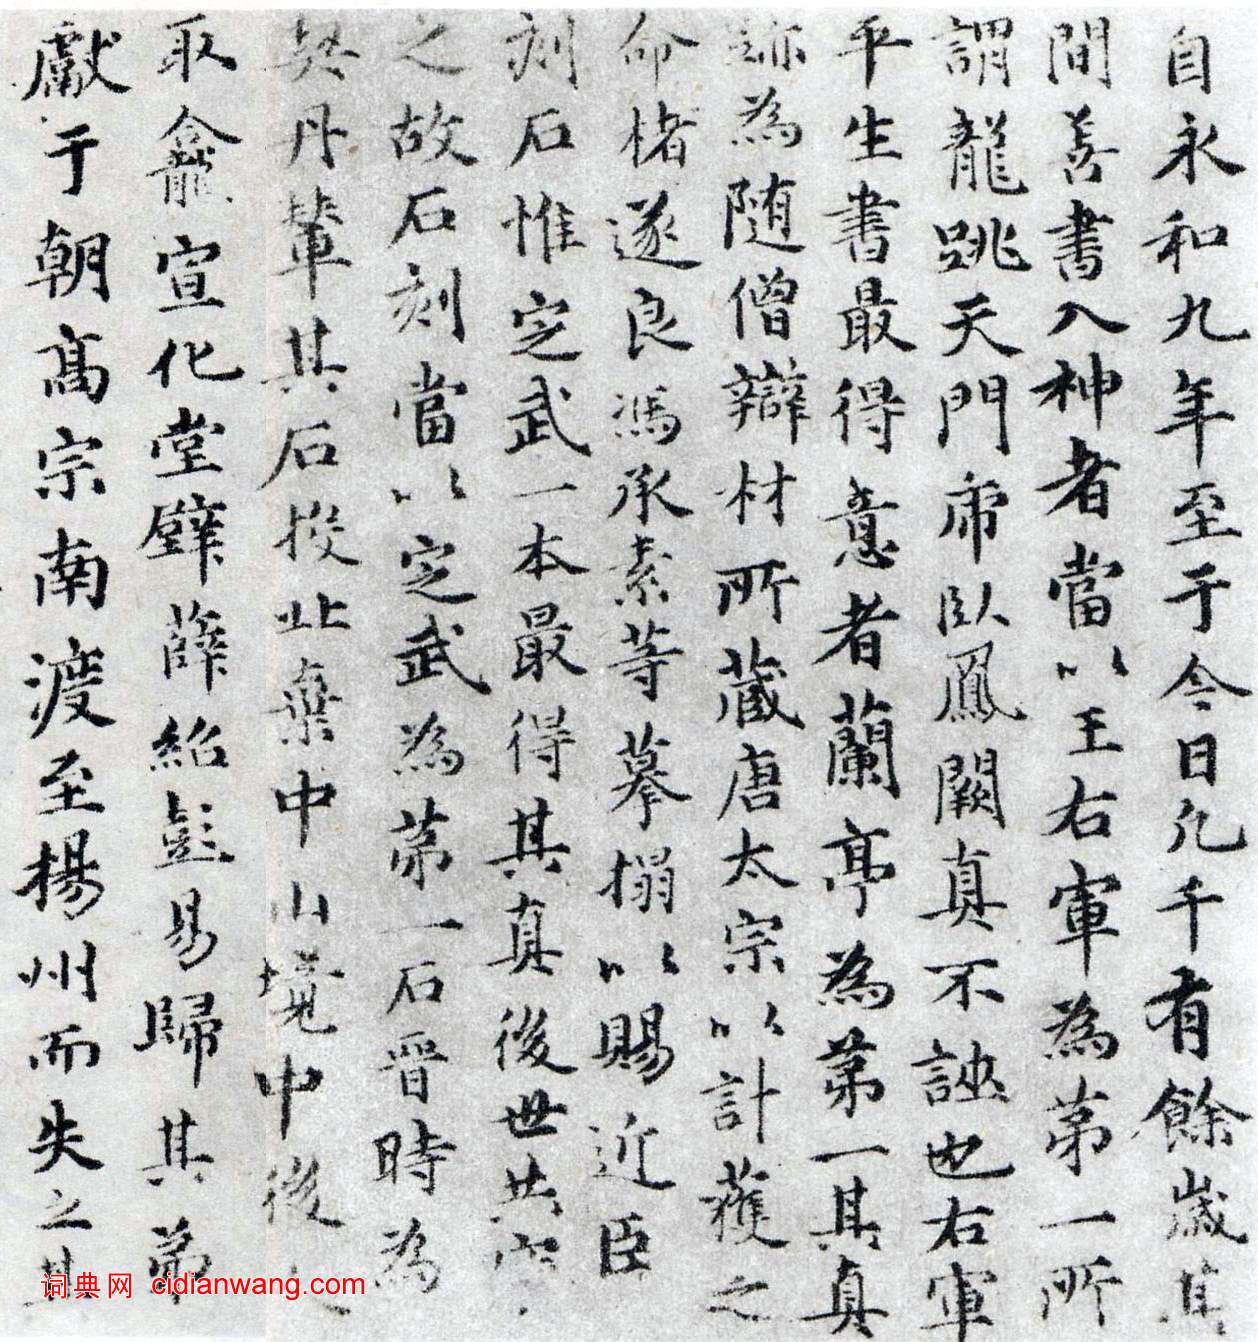 自永和九年至于今日凡千有餘歲其
間善書入神者當以王右軍為第一所
謂龍跳天門席臥鳳闕真不誣也右軍
平生書最得意者蘭亭為第一其真
跡為隨僧辯材所藏唐太宗以計蕕之
命楮遂良馮承素等摹搨以賜近臣
刻石惟定武一本最得其真後世共
之故石刻當以定武為第一石晉時為
契丹輦其石投北棄中山境中後
取龕宣化堂壁薛紹彭易歸其第
獻于朝高宗南渡至揚州而失之其
词典网 cidianwang.com